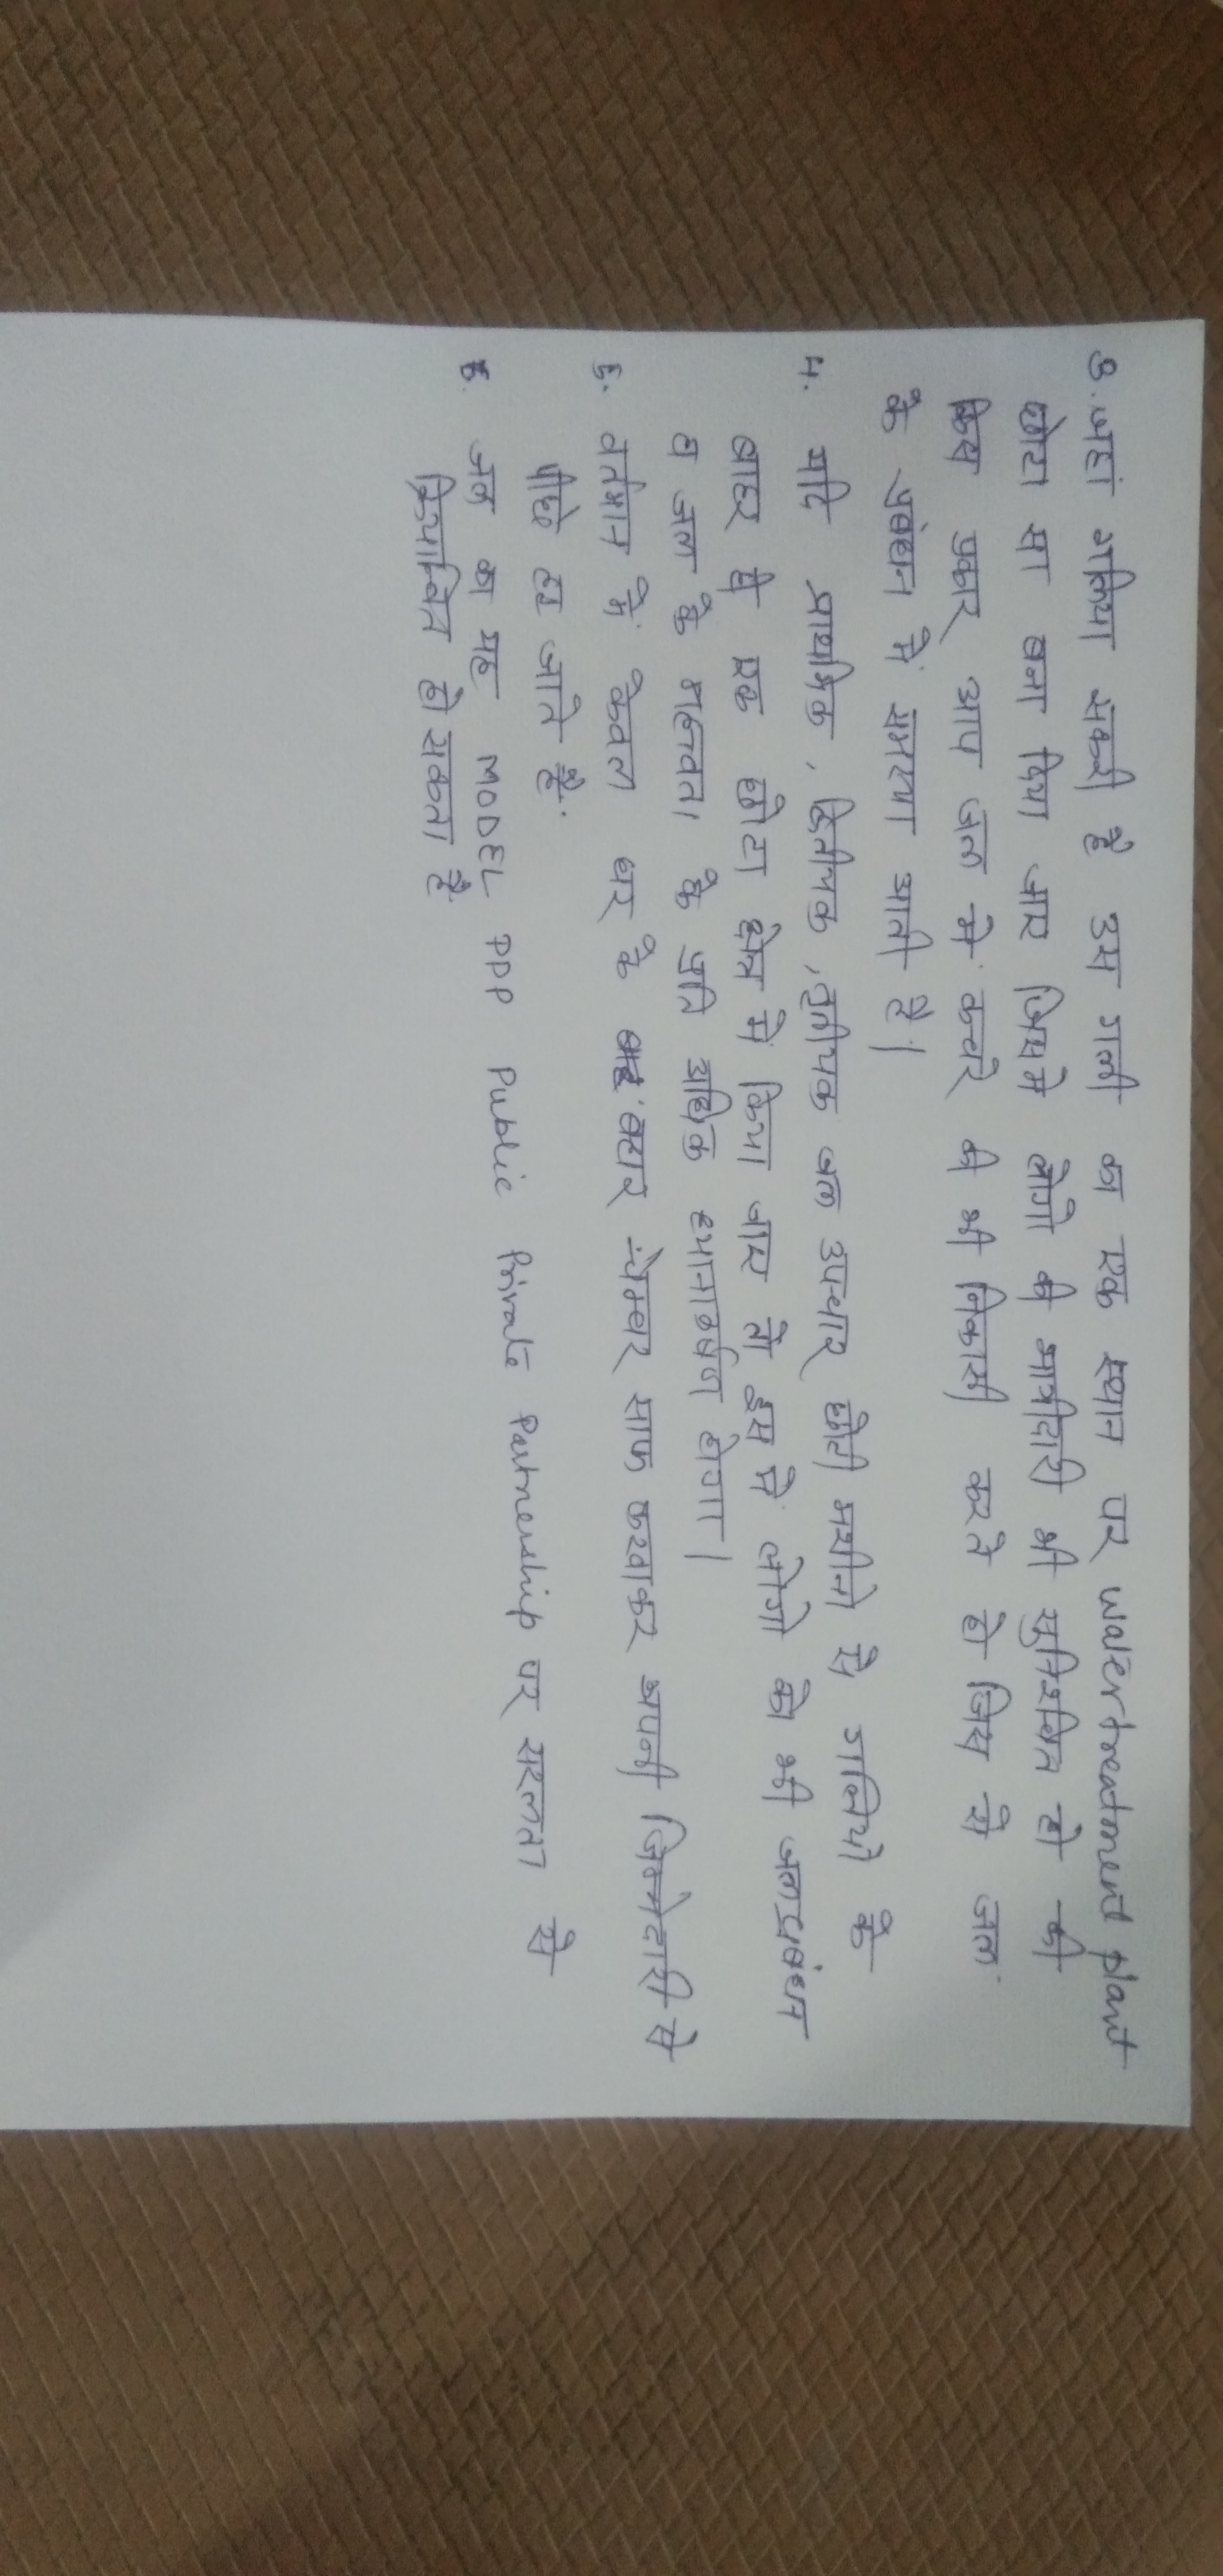 3. जहां गलिया सकरी है उस गली का एक स्थान पर water treatment plant
छोटा सा बना दिया जाए जिसमे लोगो की भागीदारी भी सुनिश्चित हो की
किस प्रकार आप जल मे कचरे की भी निकासी करते हो जिस से जल
के प्रबंधन में समस्या आती है।
4. यदि प्राथमिक, द्वितीयक, तृतीयक जल उपचार छोटी मशीनो से गलियो के
बाहर ही एक छोटा क्षेत्र में किया जाए तो इस से लोगो को भी जलप्रबंधन
व जल के महत्वता के प्रति अधिक ध्यानाकर्षण होगा।
5. वर्तमान में केवल घर के बाहर चेम्बर साफ करवाकर अपनी जिम्मेदारी से
पीछे हट जाते है.
6. जल का यह MODEL PPP Public Private Partnership पर सरलता से
क्रियान्वित हो सकता है.